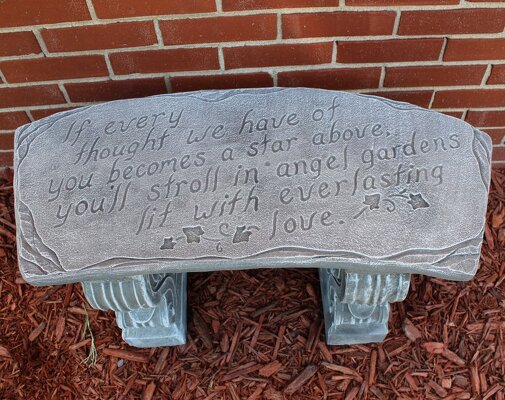 If every
thought we have of
you becomes a star above,
you'll stroll in angel gardens
lit with everlasting
love.